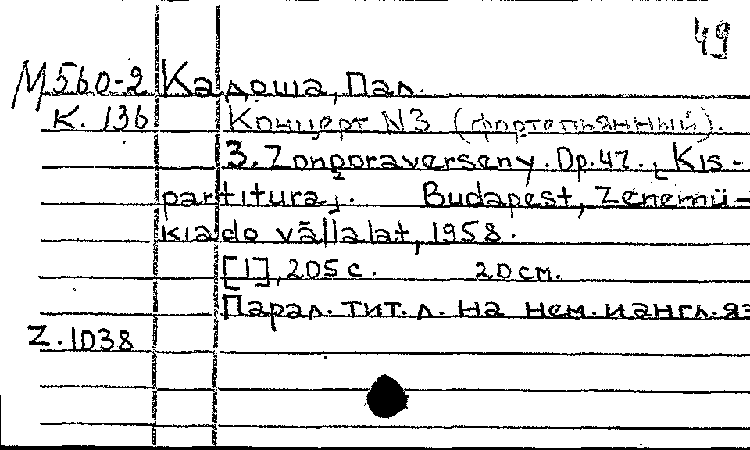 49
М560-2 Кадоша, Пал.
К. 136 Концерт N3 (фортепьянный).
3. Zongoraverseny. Op. 47. Kis-
partitura. Budapest, Zenemü-
kiado vállalat, 1958.
[1], 205 с. 20 см.
Парал. тит. л. на нем. и англ. яз
Z. 1038